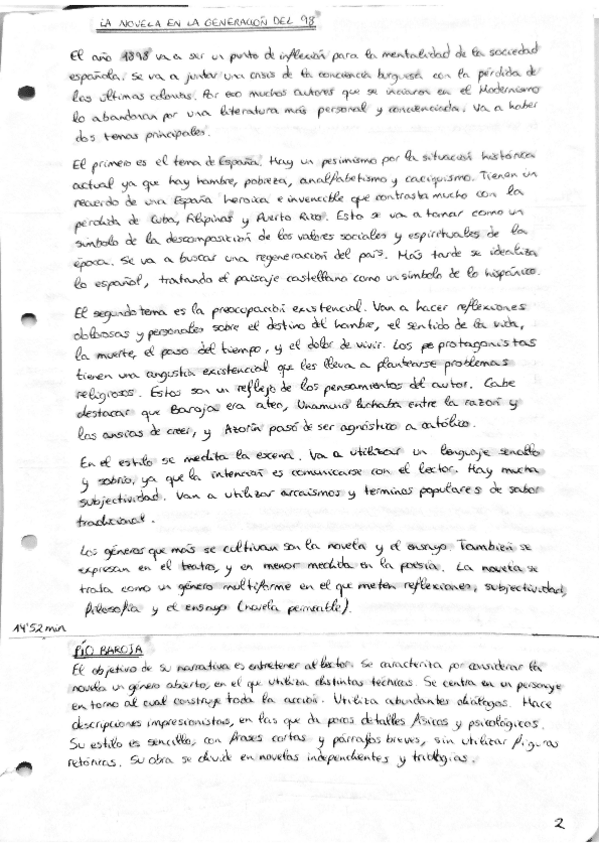 LA NOVELA EN LA GENERACIÓN DEL 98
El año 1898 va a ser un punto de inflexión para la mentalidad de la sociedad
española. Se va a juntar una crisis de la conciencia burguesa con la pérdida
de las últimas colonias. Por eso muchos autores que se iniciaron en el Modernismo
lo abandonan por una literatura más personal y concienciada. Va a haber
dos temas principales.
El primero es el tema de España. Hay un pesimismo por la situación histórica
actual ya que hay hambre, pobreza, analfabetismo y caciquismo. Tienen un
recuerdo de una España heroica e invencible que contrasta mucho con la
pérdida de Cuba, Filipinas y Puerto Rico. Esto se va a tomar como un
símbolo de la descomposición de los valores sociales y espirituales de la
época. Se va a buscar una regeneración del país. Más tarde se idealiza
lo español, tratando el paisaje castellano como un símbolo de lo hispánico.
El segundo tema es la preocupación existencial. Van a hacer reflexiones
dolorosas y personales sobre el destino del hombre, el sentido de la vida,
la muerte, el paso del tiempo, y el dolor de vivir. Los protagonistas
tienen una angustia existencial que les lleva a plantearse problemas
religiosos. Estos son un reflejo de los pensamientos del autor. Cabe
destacar que Baroja era ateo, Unamuno luchaba entre la razón y
las ansias de creer, y Azorín pasó de ser agnóstico a católico.
En el estilo se medita la escena. Va a utilizar un lenguaje sencillo
y sobrio, ya que la intención es comunicarse con el lector. Hay mucha
subjectividad. Van a utilizar arcaísmos y términos populares de sabor
tradicional.
Los géneros que más se cultivan son la novela y el ensayo. También se
expresan en el teatro, y en menor medida en la poesía. La novela se
trata como un género multiforme en el que meten reflexiones, subjectividad,
filosofía y el ensayo (novela permeable).
14'52 min
PÍO BAROJA
El objetivo de su narrativa es entretener al lector. Se caracteriza por considerar la
novela un género abierto, en el que utiliza distintas técnicas. Se centra en un personaje
en torno al cual construye toda la acción. Utiliza abundantes diálogos. Hace
descripciones impresionistas, en las que da pocos detalles físicos y psicológicos.
Su estilo es sencillo, con frases cortas y párrafos breves, sin utilizar figuras
retóricas. Su obra se divide en novelas independientes y trilogías.
2